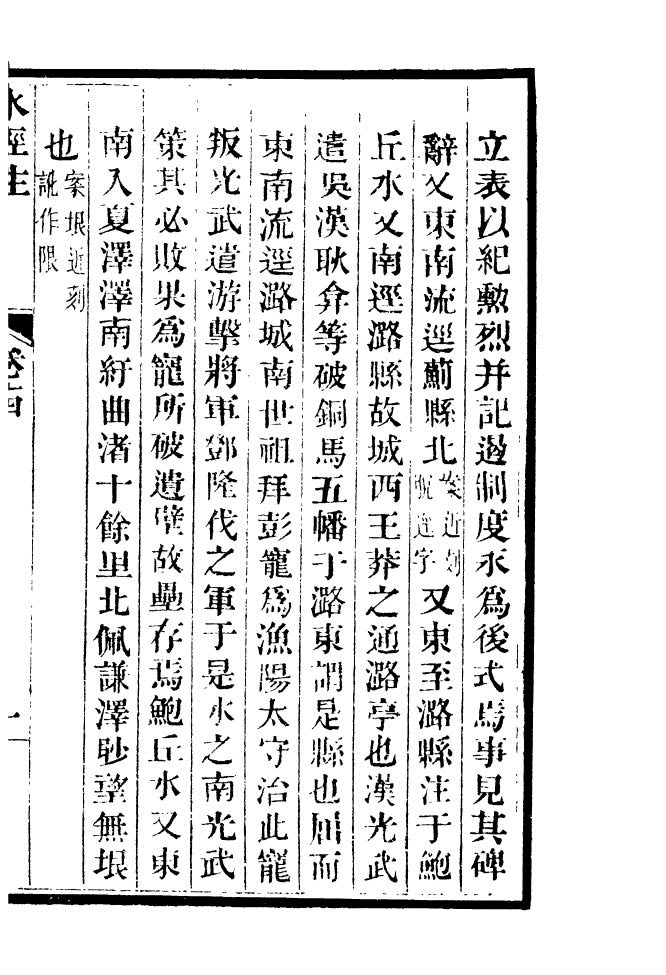 立表以紀勳烈并記遏制度永爲後式焉事見其碑
辭又東南流逕薊縣北案近刻脫逕字又東至潞縣注于鮑
丘水又南逕潞縣故城西王莽之通潞亭也漢光武
遣吳漢耿弇等破銅馬五幡于潞東謂是縣也屈而
東南流逕潞城南世祖拜彭寵爲漁陽太守治此寵
叛光武遣游擊將軍鄧隆伐之軍于是水之南光武
策其必敗果爲寵所破遺壁故壘存焉鮑丘水又東
南入夏澤澤南紆曲渚十餘里北佩謙澤眇望無垠
也案垠近刻訛作限
水經注 卷十四